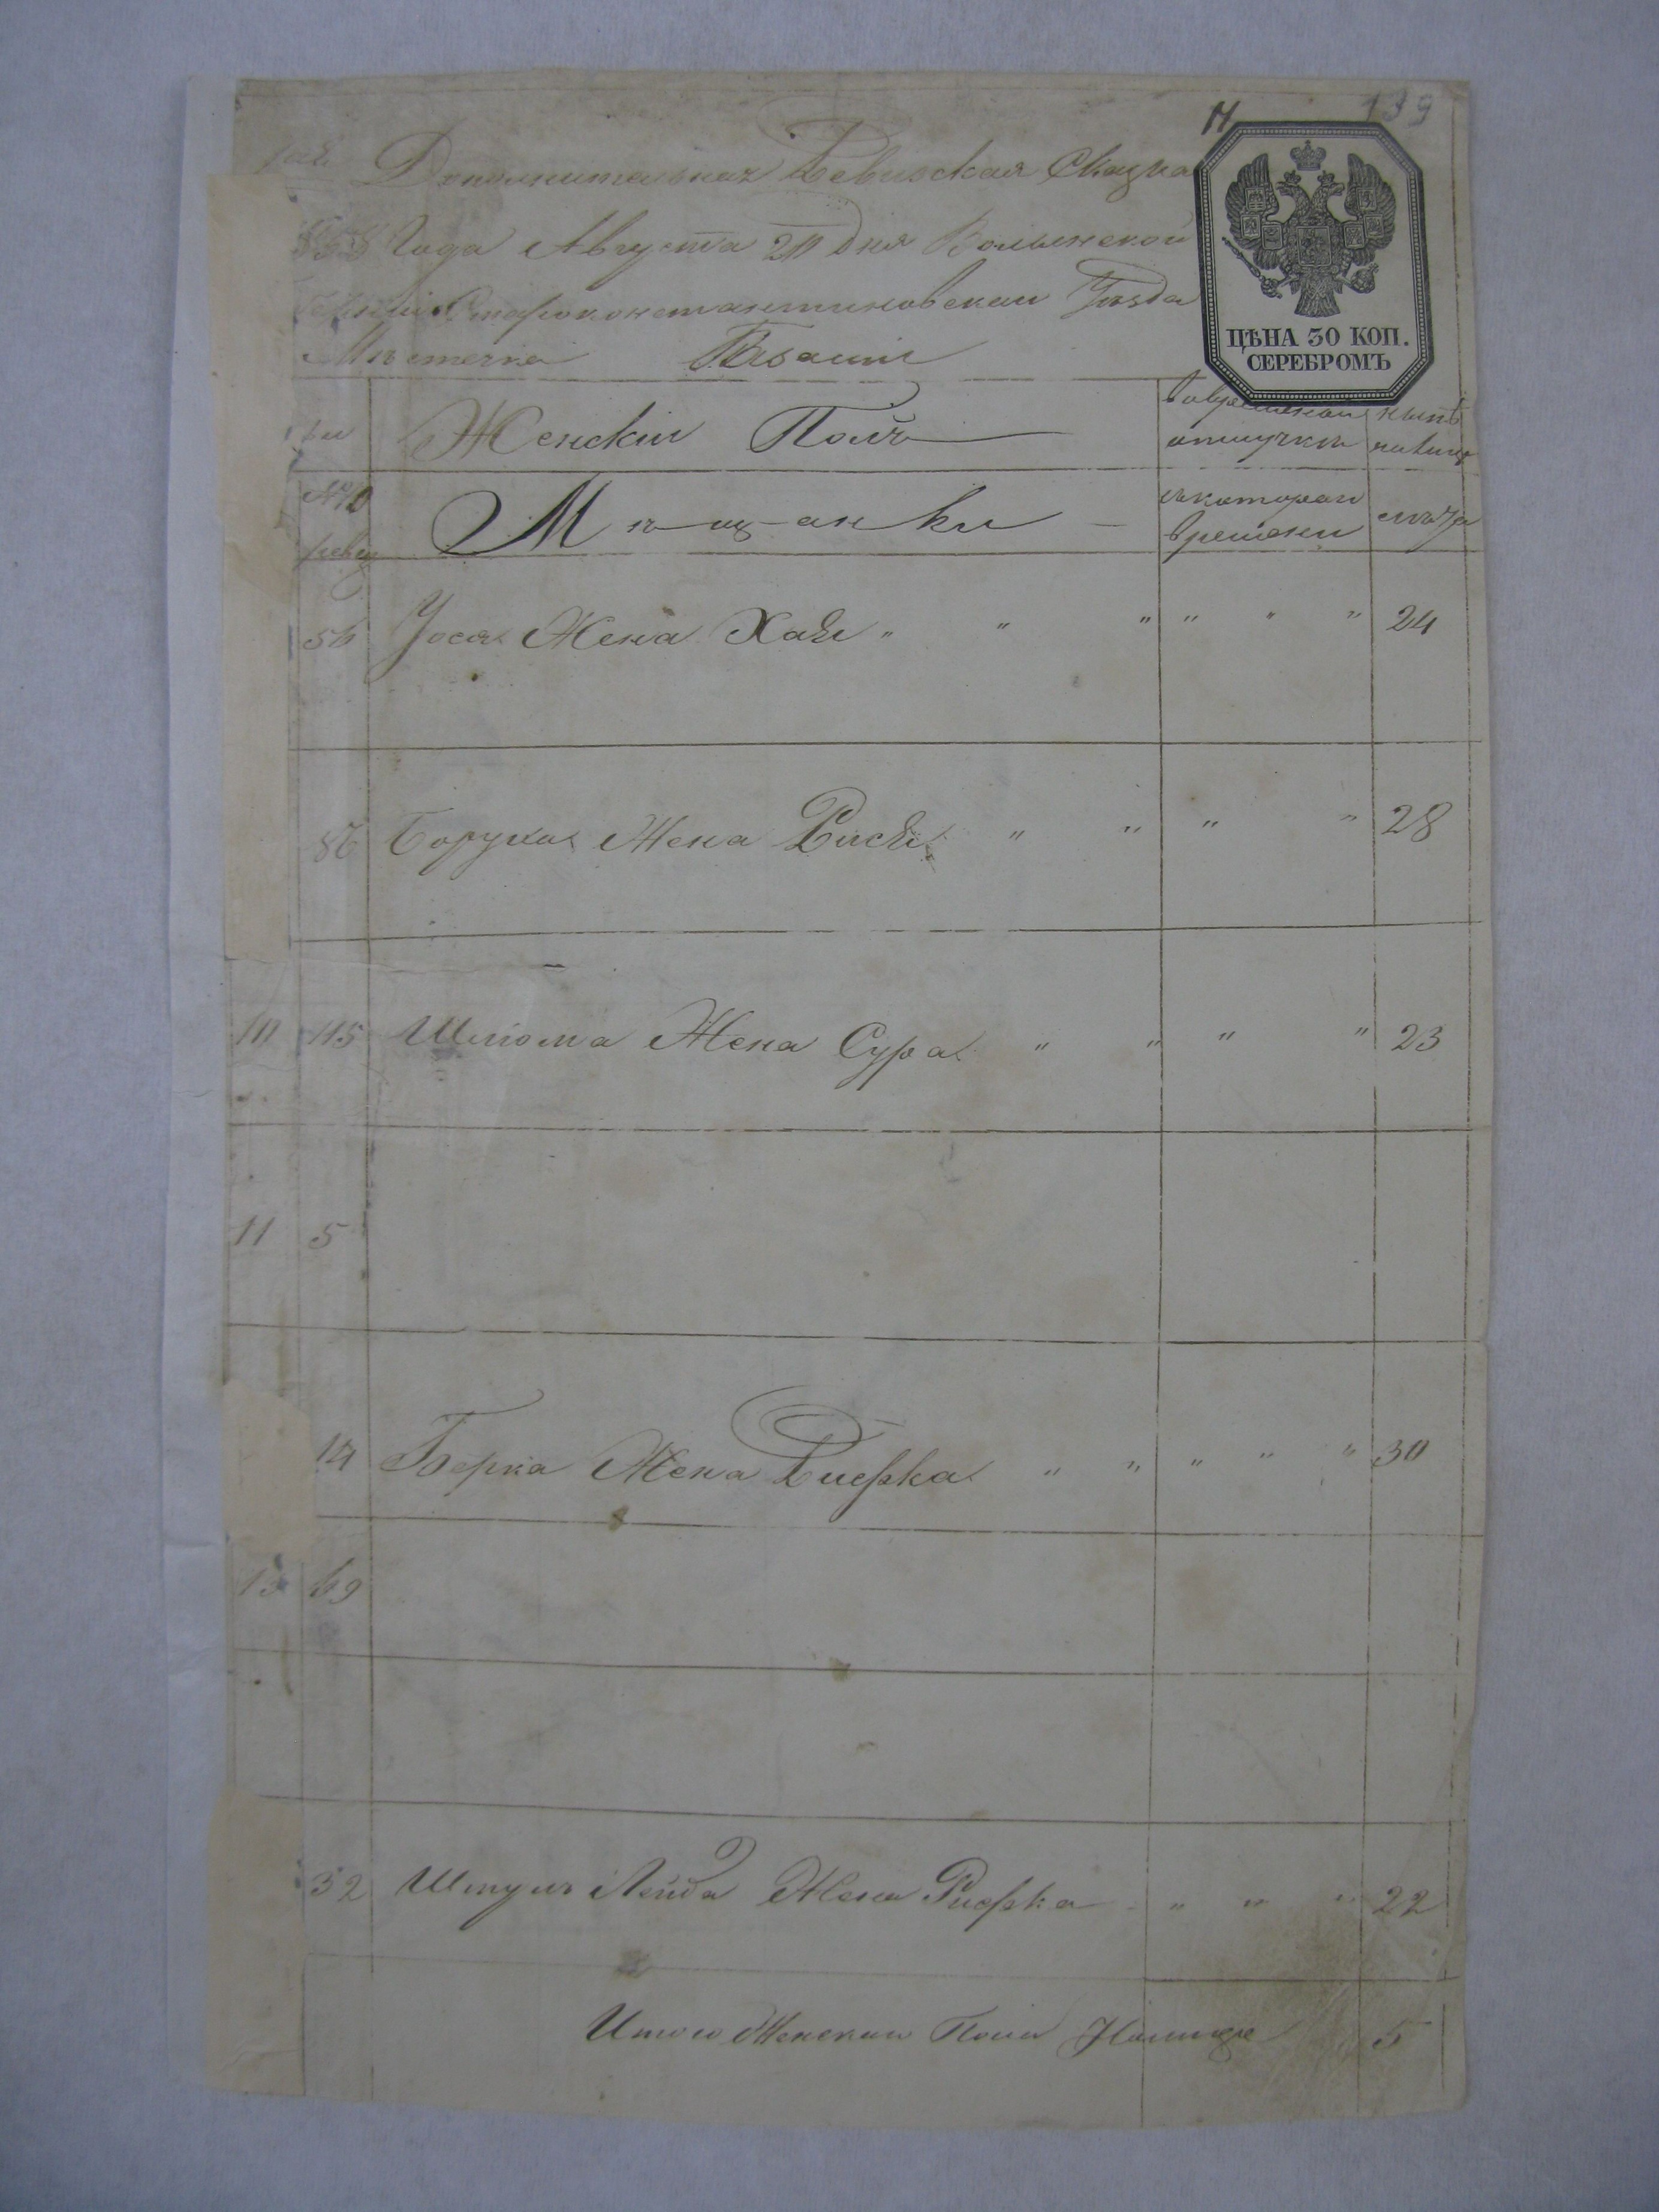 Н 139
Дополнительная Ревизская Сказка
1858 Года Августа 20 дня Волынской
Губернии Староконстантиновскаго Уезда
Местечка
ЦѢНА 30 КОП.
СЕРЕБРОМЪ
Женскiй Полъ
во временной отлучкѣ
нынѣ на лицо
Мѣщанки
съ котораго времени
лѣта
56 Иося Жена Хая " " " " " " 24
86 Боруха Жена Рися " " " " 28
10 115 Шлiома Жена Сура " " " " 23
11 5
14 Берка Жена Рифка " " " " " 30
13 69
52 Штуль Лейба Жена Рифка " " " 22
Итого Женскаго Пола Налицо 5